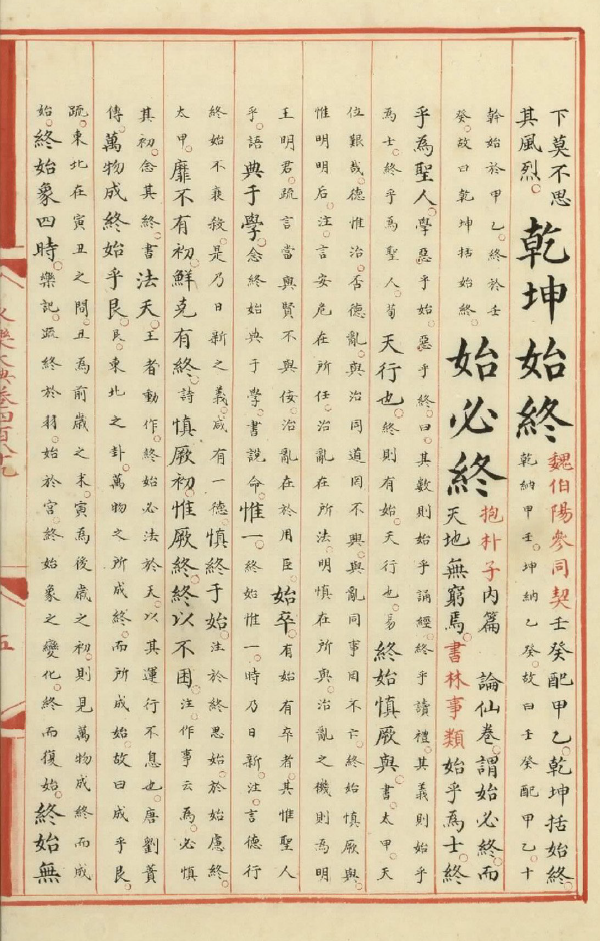 下莫不思
其風烈。
乾坤始終
魏伯陽參同契壬癸配甲乙。乾坤括始終。
乾納甲壬。坤納乙癸。故曰壬癸配甲乙。十
幹始於甲乙。終於壬
癸。故曰乾坤括始終。
始必終
抱朴子內篇 論仙卷。謂始必終。而
天地無窮焉。書林事類始乎為士。終
乎為聖人。學惡乎始。惡乎終。曰。其數則始乎誦經。終乎讀禮。其義則始乎
為士。終乎為聖人。荀 天行也。終則有始。天行也。易 終始慎厥與。書。太甲。天
位艱哉。德惟治。否德亂。與治同道罔不興。與亂同事罔不亡。終始慎厥與。
惟明明后。注。言安危在所任。治亂在所法。明慎在所與。治亂之機則為明
王明君。疏言當與賢不與佞。治亂在於用臣。始卒。有始有卒者。其惟聖人
乎。語 典于學。念終始典于學。書說命。惟一。終始惟一。時乃日新。注。言德行
終始不衰殺。是乃日新之義。咸有一德。慎終于始。注於終思始。於始慮終。
太甲。靡不有初。鮮克有終。詩 慎厥初。惟厥終。終以不困。注。作事云為。必慎
其初。念其終。書 法天。王者動作。終始必法於天。以其運行不息也。唐劉蕡
傳。萬物成終始乎艮。艮。東北之卦。萬物之所成終。而所成始。故曰成乎艮。
疏。東北在寅丑之間。丑為前歲之末。寅為後歲之初。則是萬物成終而成
始。終始象四時。樂記。疏終於羽。始於宮。終始象之變化。終而復始。終始無
永樂大典卷四百八十九
五